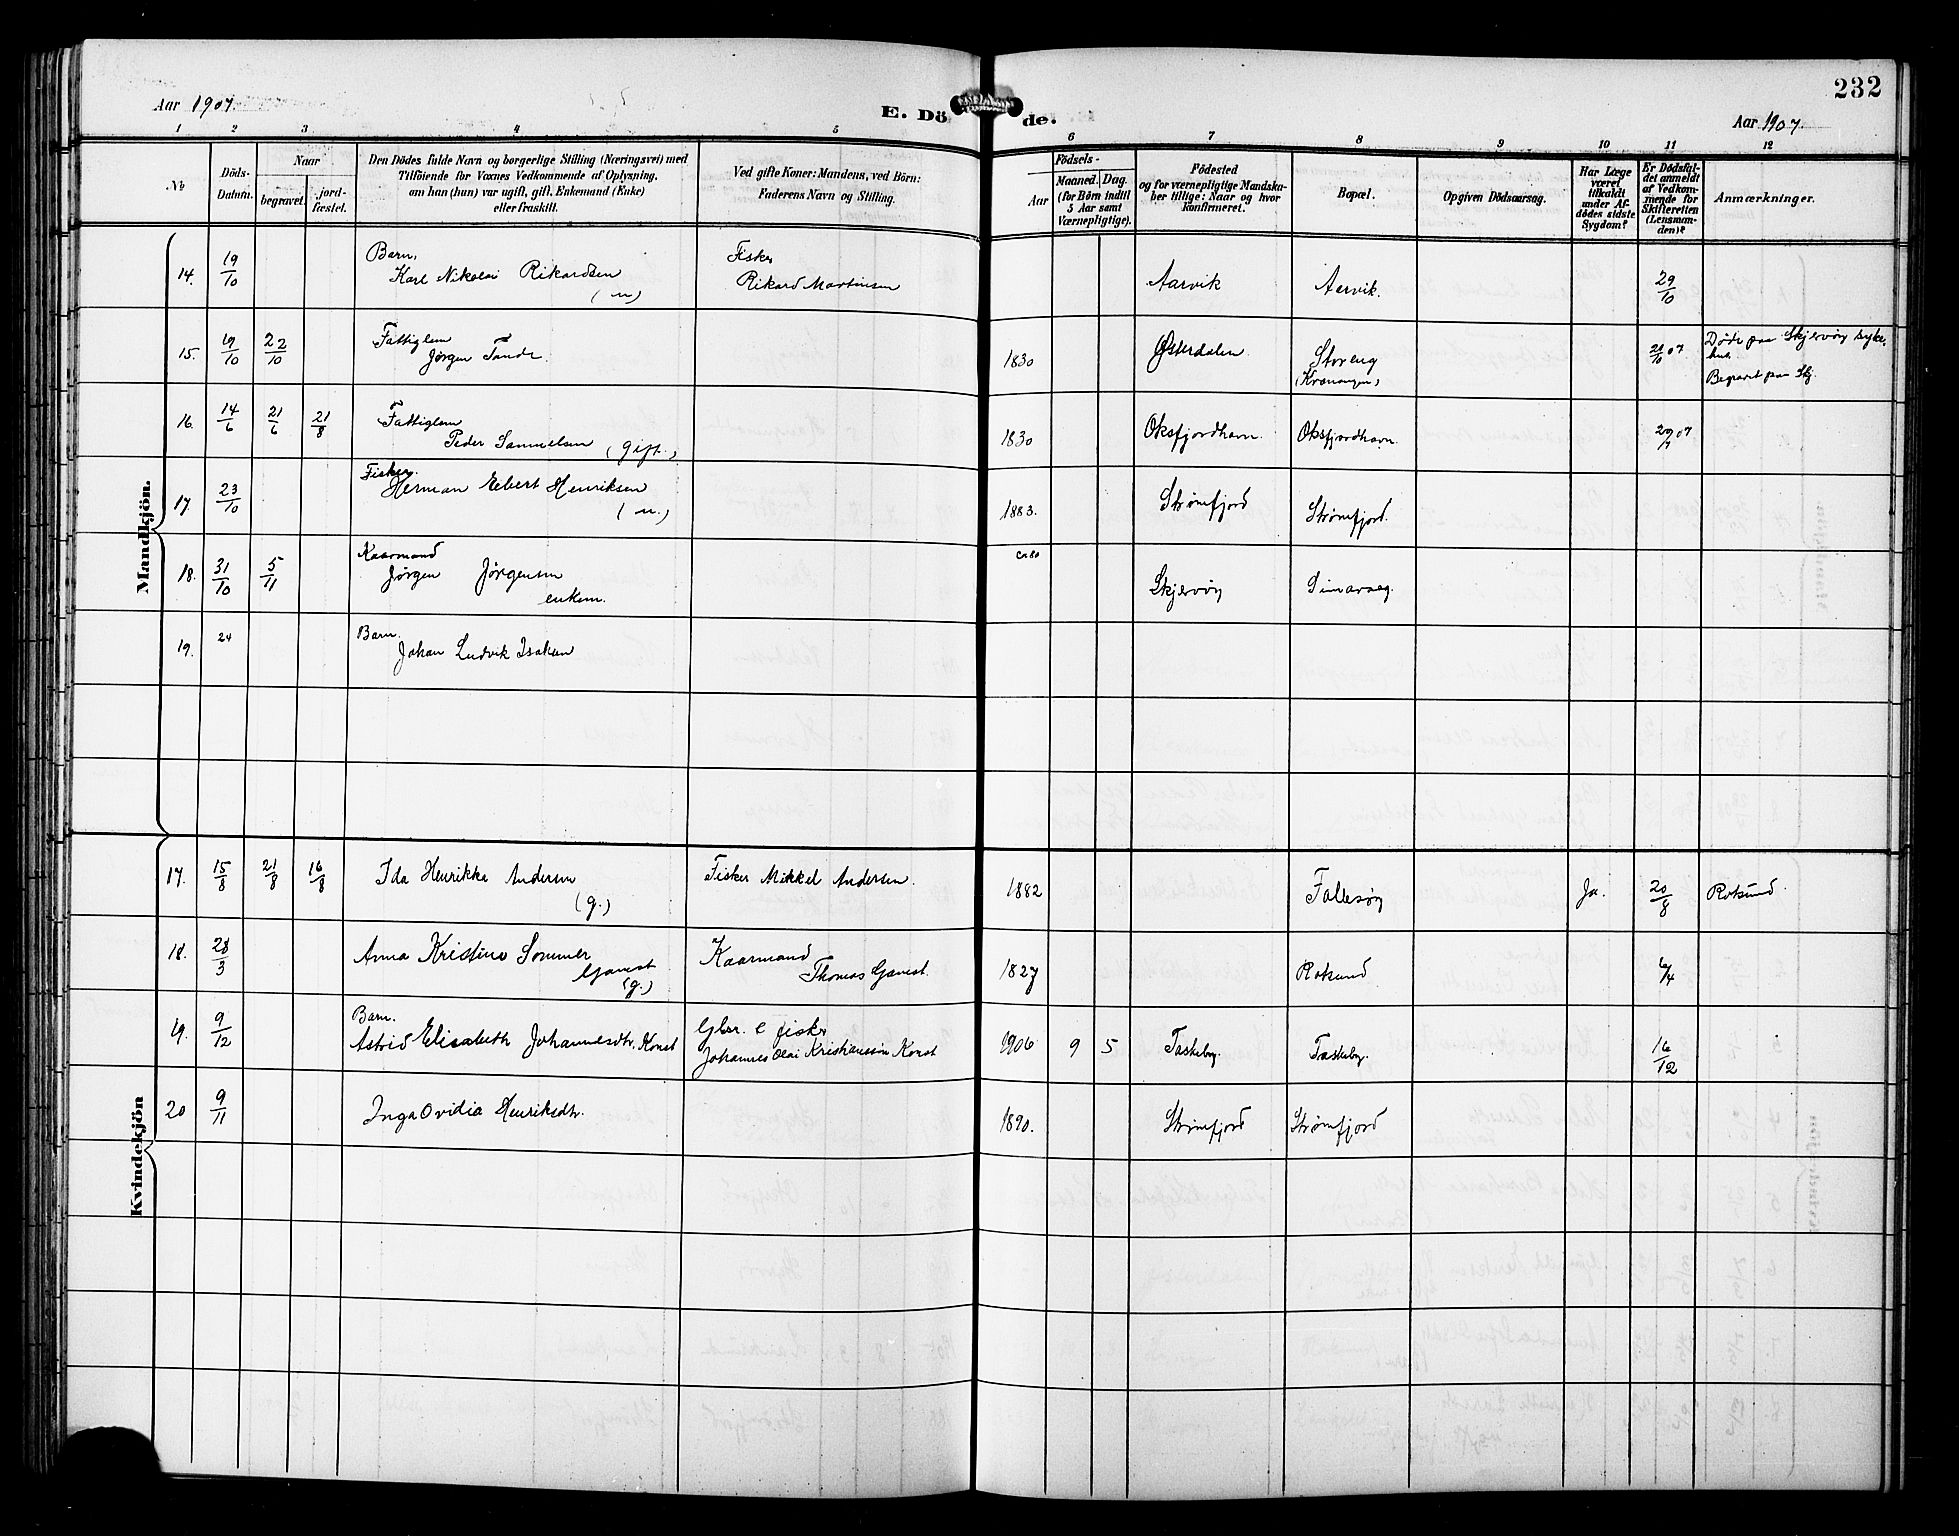 232
Aar 1907.
E. Döde.
Aar 1907.
1 2 3 4 5 6 7 8 9 10 11 12
No
Döds-Datum.
Naar
begravet.
jord-fæstet.
Den Dödes fulde Navn og borgerlige Stilling (Næringsvei) med
Tilföiende for Voxnes Vedkommende af Oplysning,
om han (hun) var ugift, gift, Enkemand (Enke)
eller fraskilt.
Ved gifte Koner: Mandens, ved Börn:
Faderens Navn og Stilling.
Födsels-
Aar
Maaned. Dag.
(for Börn indtil
5 Aar samt
Værnepligtige).
Födested
og for værnepligtige Mandska-
ber tillige: Naar og hvor
konfirmeret.
Bopæl.
Opgiven Dödsaarsag.
Har Læge
været
tilkaldt
under Af-
dödes sidste
Sygdom?
Er Dödsfal-
det anmeldt
af Vedkom-
mende for
Skifteretten
(Lensman-
den)?
Anmærkninger.
Mandkjön.
14. 19/10 Barn, Fisker
Karl Nikolai Rikardsen Rikard Martinsen Aarvik Aarvik. 29/10
(u)
15. 19/10 22/10 Fattiglem
Jørgen Tande. 1830 Østerdalen Storeng 07 Døde paa Skjervøy syke-
hus.
(Kvænangen) Begravet paa Skj.
16. 14/6 21/6 21/8 Fattiglem
Peder Samuelsen (gift.) 1830 Oksfjordhavn. Oksfjordhavn. 07
17. 23/10 Fisker.
Herman Eebert Henriksen 1883. Strømfjord Strømfjord.
(u.)
18. 31/10 5/11 Kaarmand ca 80
Jørgen Jørgensen Skjervøy
enkem.
19. 24 Barn.
Johan Ludvik Isaksen
Kvindekjön
17. 15/8 21/8 16/8 Ida Henrikke Andersen Fisker Mikkel Andersen. 1882 Follesøy Ja. 20/8 Rotsund.
(g.)
18. 28/3 Anna Kristine Sommer Kaarmand
Gavest Thomas Gavest. 1827 Rotsund 6/4
(g.)
19. 9/12 Barn. Gbr. e fisker
Astrid Elisabeth Johannesdtr. Konst Johannes Olai Kristianssøn Konst 1906 9 5 Taskeby. Taskeby. 16/12
20 9/11 Inga Ovidia Henriksdtr. 1890. Strømfjord Strømfjord